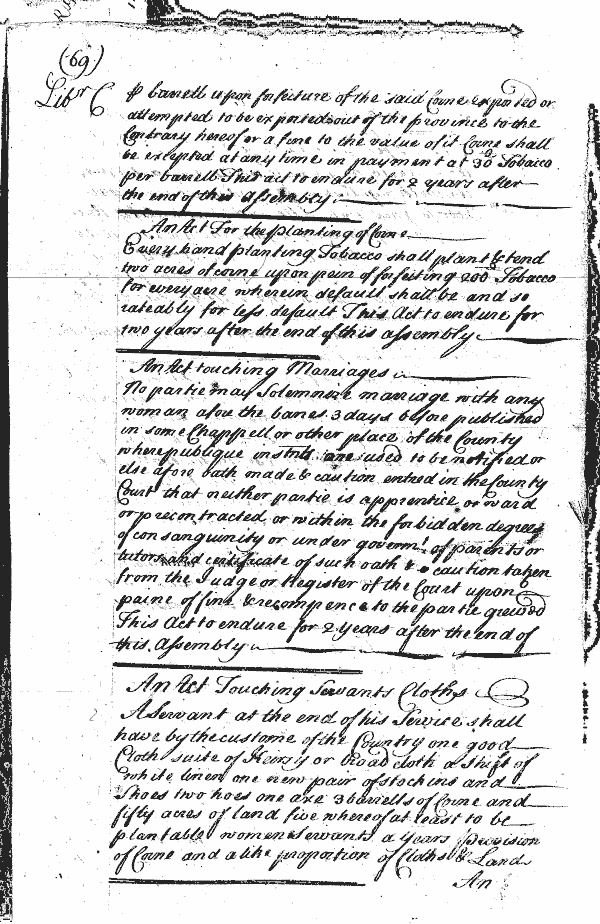 (69)
Libr C
⅌ barrell upon forfeiture of the said Corne exported or
attempted to be exported out of the province to the
Contrary hereof or a fine to the value of it Corne shall
be excepted at any time in payment at 30lb Tobacco
per barrell This act to endure for 2 years after
the end of this Assembly
An Act For the planting of Corne
Every hand planting Tobacco shall plant & tend
two acres of corne upon pein of forfeiting 200 Tobacco
for every acre wherein default shall be and so
rateably for less default This Act to endure for
two years after the end of this assembly
An Act touching Marriages
No partie may Solemnize marriage with any
woman afore the banes 3 days before published
in some Chappell or other place of the County
where publique are used to be notified or
else afore oath made & caution entred in the County
Court that neither partie is apprentice or ward
or precontracted or within the forbidden degrees
of consanguinity or under governmt of parents or
tutors and certificate of such oath & caution taken
from the Judge or Register of the Court upon
paine of fine & recompence to the partie grieved
This Act to endure for 2 Years after the end of
this Assembly
An Act Touching Servants Cloths
A Servant at the end of his Service shall
have by the custome of the Country one good
Cloth suite of Kersey or broad cloth a Shift of
white linen one new pair of stockins and
Shoes two hoes one axe 3 barrells of Corne and
fifty acres of land five whereof at least to be
plantable women Servants a years Provision
of Corne and a like proportion of Cloths & Land
An